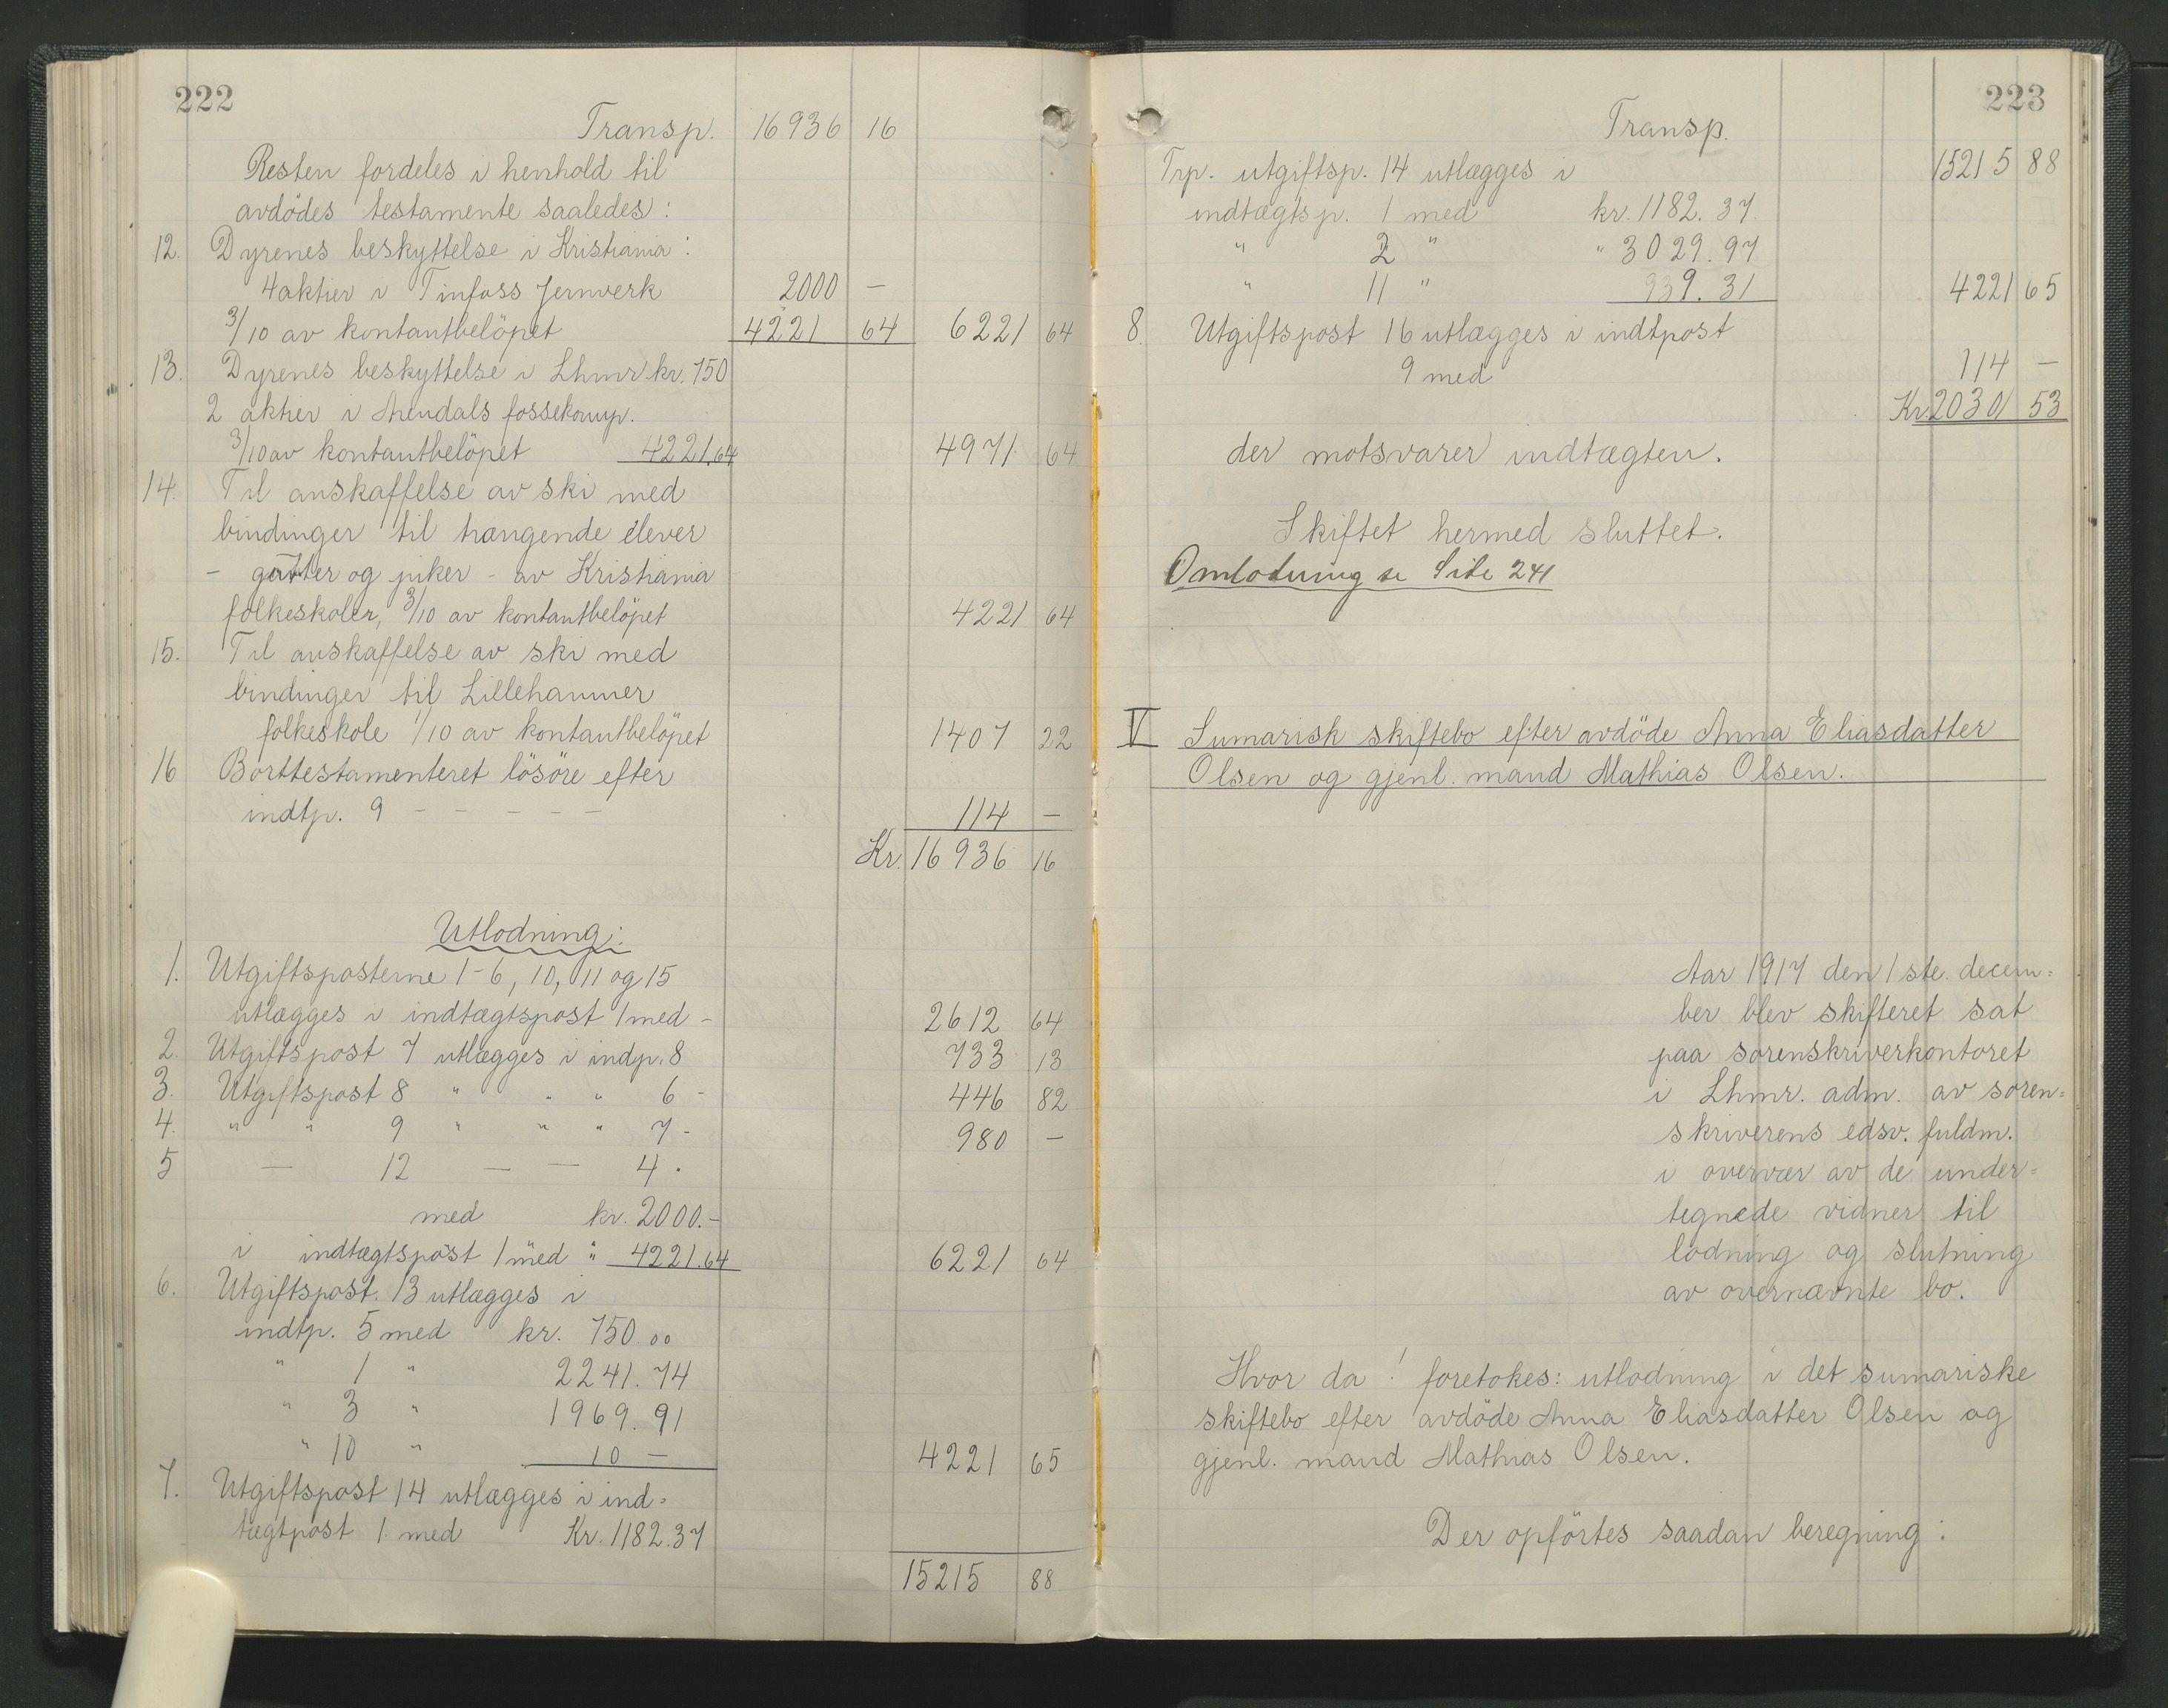 222
Transp. 16936 16
Resten fordeles i henhold til
avdödes testamente saaledes:
12. Dyrenes beskyttelse i Kristiania:
4 aktier i Tinfoss Jernverk 2000 —
3/10 av kontantbelöpet 4221 64 6221 64
13. Dyrenes beskyttelse i Lhmr kr. 750
2 aktier i Arendals fossekomp.
3/10 av kontantbelöpet 4221.64 4971 64
14. Til anskaffelse av ski med
bindinger til trængende elever
- gutter og piker - av Kristiania
folkeskoler, 3/10 av kontantbelöpet 4221 64
15. Til anskaffelse av ski med
bindinger til Lillehammer
folkeskole 1/10 av kontantbelöpet 1407 22
16 Borttestamenteret lösöre efter
indtp. 9 - - - - - 114 —
Kr. 16936 16
Utlodning:
1. Utgiftsposterne 1-6, 10, 11 og 15
utlægges i indtægtspost 1 med - 2612 64
2. Utgiftspost 7 utlægges i indp. 8 733 13
3. Utgiftspost 8 " " " 6 - 446 82
4. " " 9 " " " 7 - 980 —
5 — 12 — — 4.
med kr. 2000.-
i indtægtspost 1 med " 4221.64 6221 64
6. Utgiftspost 13 utlægges i
indtp. 5 med kr. 750.00
" 1 " 2241.74
" 3 " 1969.91
" 10 " 10 — 4221 65
7. Utgiftspost 14 utlægges i ind=
tægtpost 1 med Kr. 1182.37
15215 88
223
Transp.
15215 88
Trp. utgiftsp. 14 utlægges i
indtægtsp. 1 med kr. 1182.37
" 2 " " 3029.97
" 11 " 939.31 4221 65
8. Utgiftspost 16 utlægges i indtpost
9 med 114 —
Kr. 20301 53
der motsvarer indtægten.
Skiftet hermed sluttet.
Omlodning se Side 241
V Sumarisk skiftebo efter avdöde Anna Eliasdatter
Olsen og gjenl. mand Mathias Olsen.
Aar 1917 den 1ste. decem=
ber blev skifteret sat
paa sorenskriverkontoret
i Lhmr. adm. av soren=
skriverens edsv. fuldm.
i overvær av de under=
tegnede vidner til
lodning og slutning
av overnævnte bo.
Hvor da! foretokes: utlodning i det sumariske
skiftebo efter avdöde Anna Eliasdatter Olsen og
gjenl. mand Mathias Olsen.
Der opförtes saadan beregning: